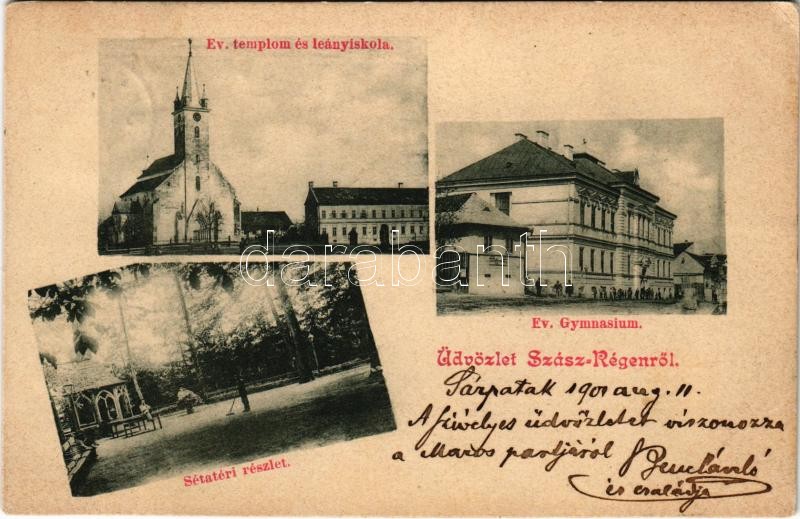 Ev. templom és leányiskola.
Ev. Gymnasium.
Üdvözlet Szász-Régenről.
Sárpatak 1901 aug. 11.
A szívélyes üdvözletet viszonozza
a Maros partjáról
és családja
Sétatéri részlet.
darabanth